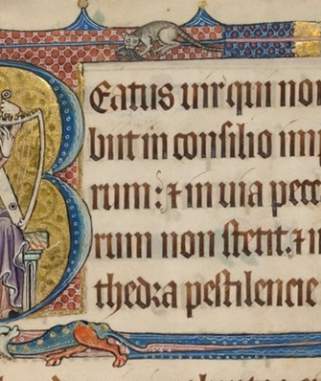 Beatus uir qui non
biit in consilio imp
rum: ⁊ in uia pecc
rum non stetit. ⁊ in
thedra pestilencie